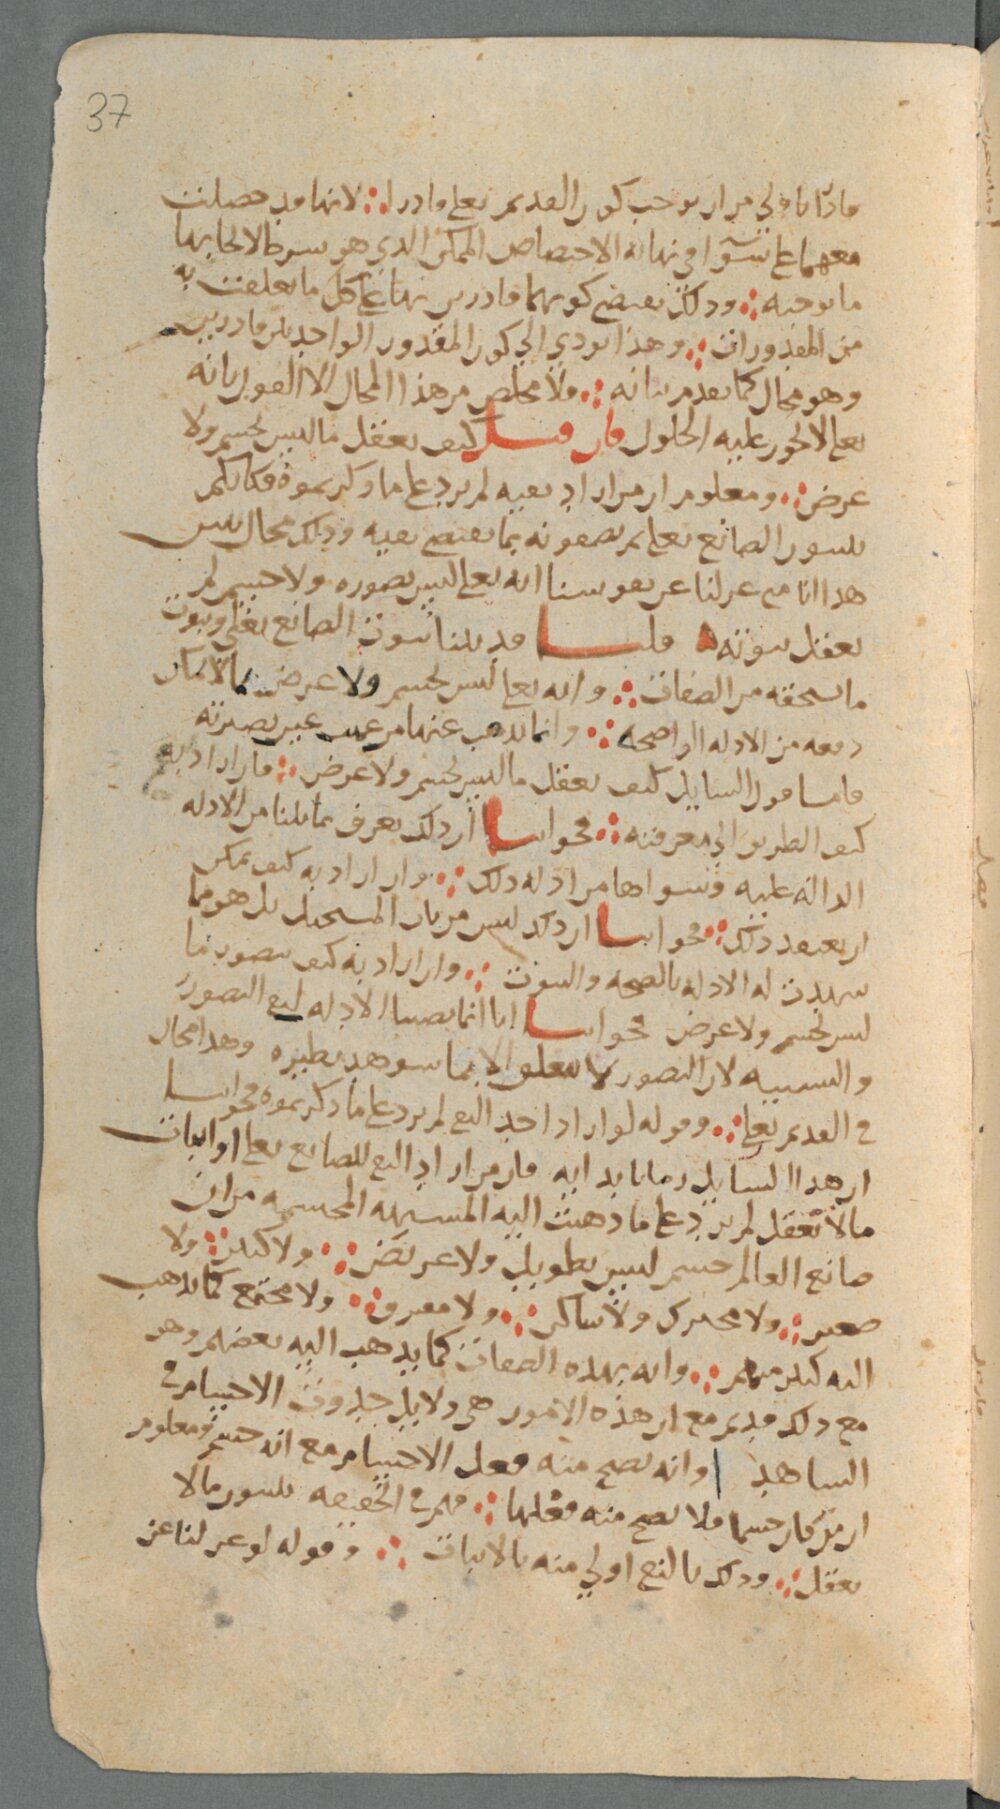 37
قادرا باولى من ان يوجب كون القديم تعلى قادرا ؞ لانها قد حصلت
معهما على سوآ في نهاية الاختصاص الممكن الذي هو شرط الايجابها
ما توجبه ؞ وذلك يقتضي كونهما قادرين بها على كل ما تعلقت به
من المقدورات ؞ وهذا يودي الى كون المقدور الواحد بين قادرين
وهو محال كما تقدم بيانه ؞ ولا مخلص من هذا المحال الا القول بانه
تعلى لا يجوز عليه الحلول فان قيل كيف يعقل ما ليس بجسم ولا
عرض ؞ ومعلوم ان من اراد نفيه لم يزد على ما ذكرتموه فكانكم
تثبتون الصانع تعلى ثم تصفونه بما يقتضي نفيه وذلك محال يبين
هذا انا متى عزلنا عن نفوسنا انه تعلى ليس بصورة ولا جسم لم
يعقل ثبوته قلنا قد بينا ثبوت الصانع تعلى وثبوت
ما يستحقه من الصفات ؞ وانه تعلى ليس بجسم ولا عرض بما لا يمكن
دفعه من الادلة الواضحة ؞ وانما يذهب عنها من عميت عين بصيرته
فاما قول السايل كيف يعقل ما ليس بجسم ولا عرض ؞ فان اراد به
كيف الطريق الى معرفته ؞ فجوابنا ان ذلك يعرف بما بينا من الادلة
الدالة عليه وسواها من ادلة ذلك ؞ وان اراد به كيف يمكن
ان يعتقد ذلك ؞ فجوابنا ان ذلك ليس من باب المستحيل بل هو مما
شهدت له الادلة بالصحة والثبوت ؞ وان اراد به كيف يتصور ما
ليس بجسم ولا عرض فجوابنا انا انما نصبنا الادلة لنفي التصور
والتشبيه لان التصور لا يتعلق الا بما شوهد نظيره وهذا محال
في القديم تعلى ؞ وقوله لو اراد احد النفي لم يزد على ما ذكرتموه فجوابنا
ان هذا السايل رمانا بدايه فان من اراد النفي للصانع تعلى او اثبات
ما لا يعقل لم يزد على ما ذهبت اليه المشبهه المجسمه من ان
صانع العالم جسم ليس بطويل ولا عريض ؞ ولا كبير ؞ ولا
صغير ؞ ولا متحرك ولا ساكن ؞ ولا مفترق ؞ ولا مجتمع كما يذهب
اليه كثير منهم ؞ وانه بهذه الصفات كما يذهب اليه بعضهم وهو
مع ذلك قديم مع ان هذه الامور هي دلايل حدوث الاجسام في
الشاهد وانه يصح منه فعل الاجسام مع انه جسم ومعلوم
ان من كان جسما فلا يصح منه فعلها ؞ فهم في الحقيقة يثبتون ما لا
يعقل ؞ وذلك بالنفي اولى منه بالاثبات ؞ وقوله لو عزلنا عن